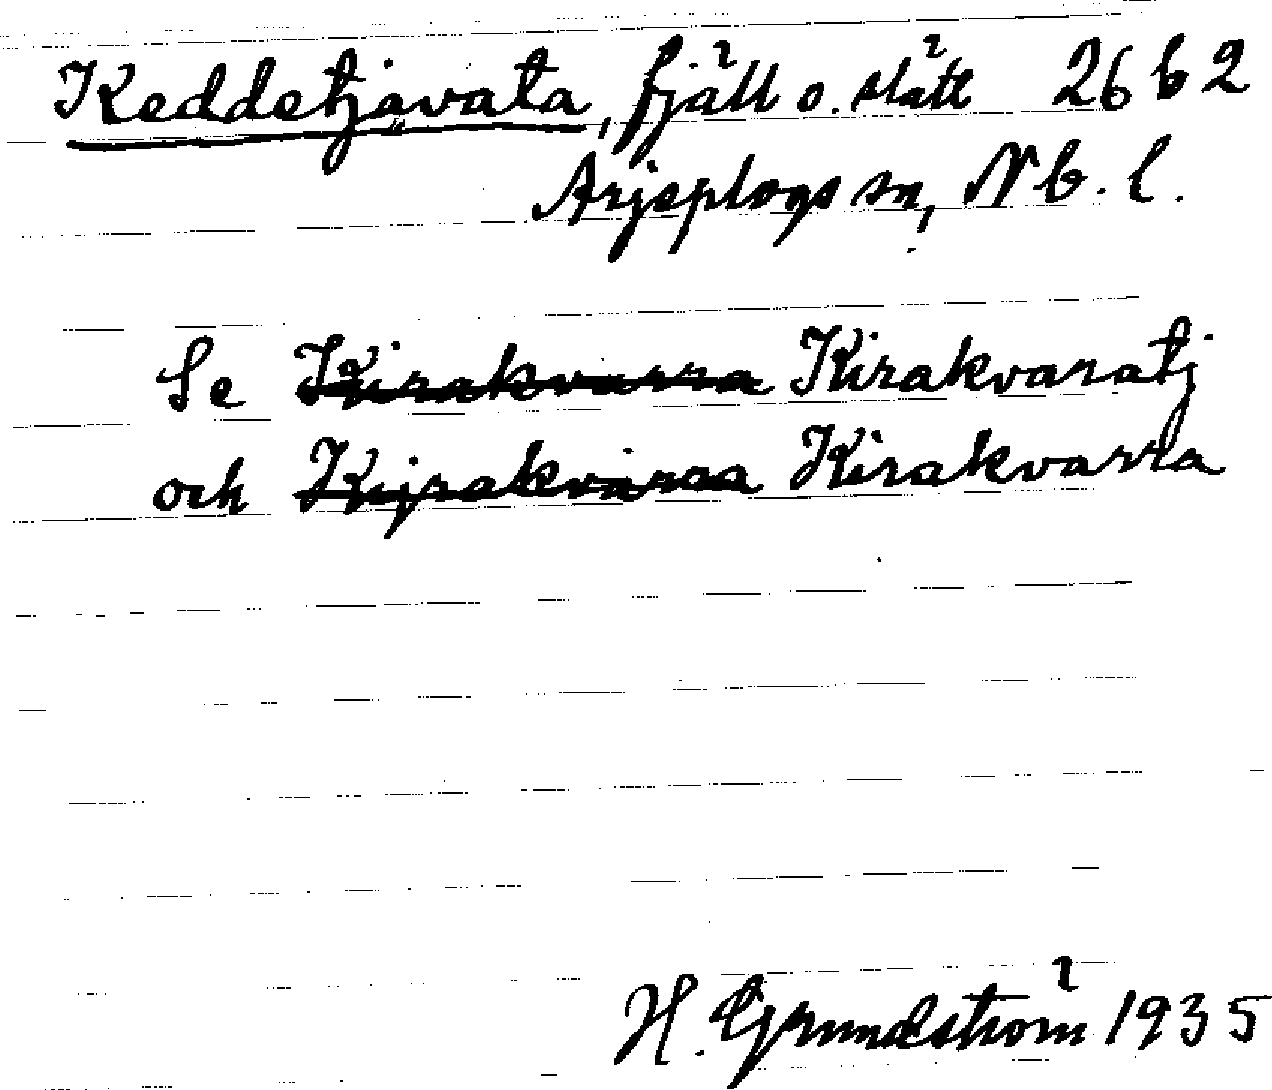 Keddetjåvata, fjäll o. slätt 26 b 2
Arjeplogs sn, Nb. l.
Se Kirakvarra Kirakvaratj
och Kijrakvaraa Kirakvarra
H. Grundström 1935